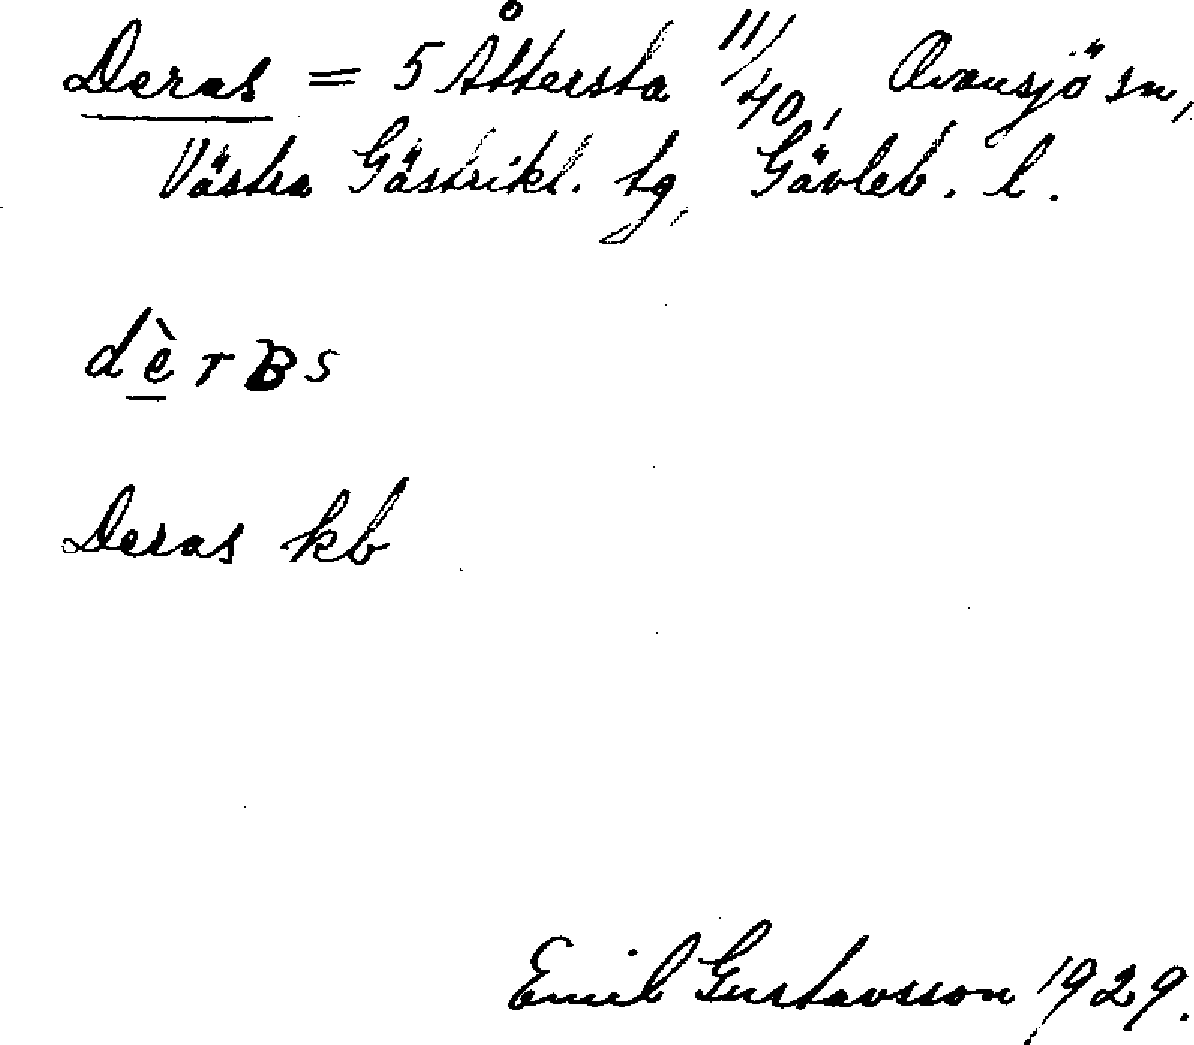 Deras = 5 Åttersta 11/40, Ovansjö sn,
Västra Gästrikl. tg, Gävleb. l.
dèrʙs
Deras kb
Emil Gustavsson 1929.